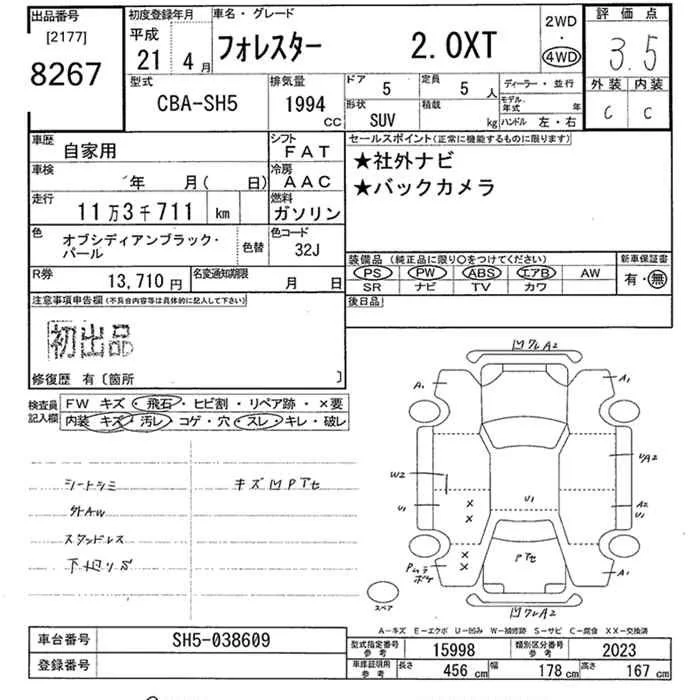 出品番号
[2177]
8267
初度登録年月
平成
21 4 月
車名・グレード
フォレスター 2.0XT
2WD
・
4WD
評価点
3.5
型式
CBA-SH5
排気量
1994 cc
ドア
5
定員
5 人
形状
SUV
積載
kg
ディーラー・並行
モデル年式 年
ハンドル 左・右
外装 内装
C C
車歴
自家用
シフト
FAT
車検
年 月( 日)
冷房
AAC
走行
11万3千711 km
燃料
ガソリン
色
オブシディアンブラック・
パール
色替
色コード
32J
R券
13,710円
名変通知期限
月 日
セールスポイント(正常に機能するものに限ります)
★社外ナビ
★バックカメラ
装備品(純正品に限り○をつけてください)
PS PW ABS エアB AW
SR ナビ TV カワ
新車保証書
有・無
後日品
注意事項申告欄(不具合内容等は具体的に記入して下さい)
初出品
修復歴 有〔箇所 〕
検査員
記入欄
FW キズ・飛石・ヒビ割・リペア跡・×要
内装 キズ・汚レ・コゲ・穴・スレ・キレ・破レ
シートシミ
外AW
スタッドレス
下廻りS
キズ凹Pアセ
凹ワレA2
A1
A1
W2
U1
U1
UA2
A2
U1
Pアセ
A1
凹ワレA2
スペア
A−キズ E−エクボ U−凹み W−補修跡 S−サビ C−腐食 XX−交換済
車台番号
SH5-038609
登録番号
型式指定番号
参考
15998
類別区分番号
参考
2023
車庫証明用
参考
長さ
456 cm
幅
178 cm
高さ
167 cm